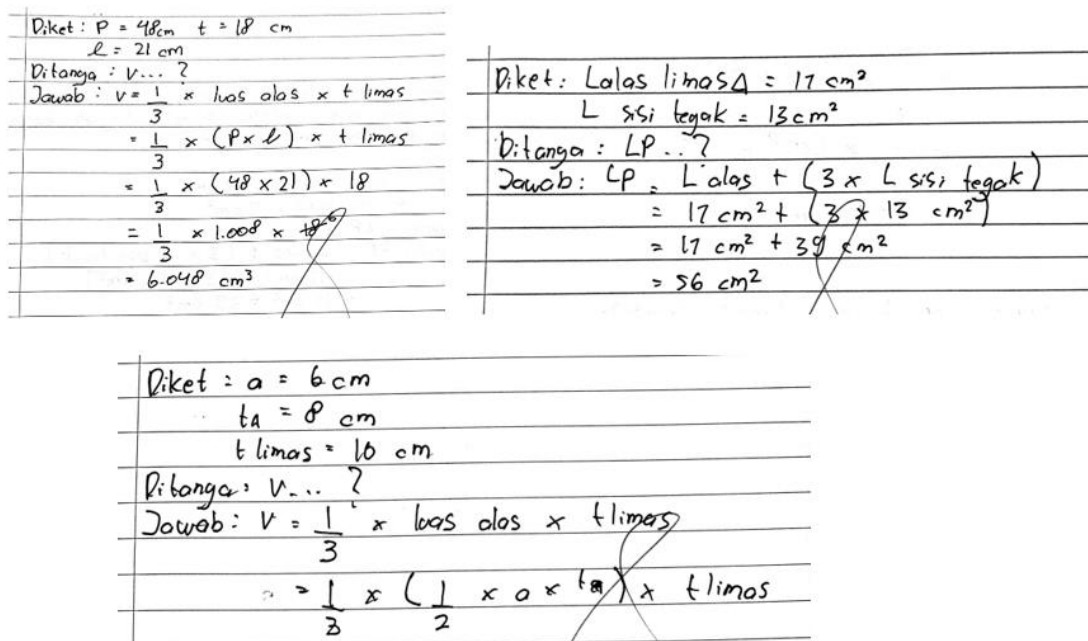 Diket : P = 48cm t = 18 cm
l = 21 cm
Ditanya : V... ?
Jawab : V = 1/3 x luas alas x t limas
= 1/3 x (P x l) x t limas
= 1/3 x (48 x 21) x 18
= 1/3 x 1.008 x 18 6
= 6.048 cm³
Diket : L alas limas Δ = 17 cm²
L sisi tegak = 13 cm²
Ditanya : LP .. ?
Jawab : LP = L alas + (3 x L sisi tegak)
= 17 cm² + (3 x 13 cm²)
= 17 cm² + 39 cm²
= 56 cm²
Diket : a = 6 cm
tΔ = 8 cm
t limas = 10 cm
Ditanya : V... ?
Jawab : V = 1/3 x luas alas x t limas
= 1/3 x (1/2 x a x tΔ) x t limas